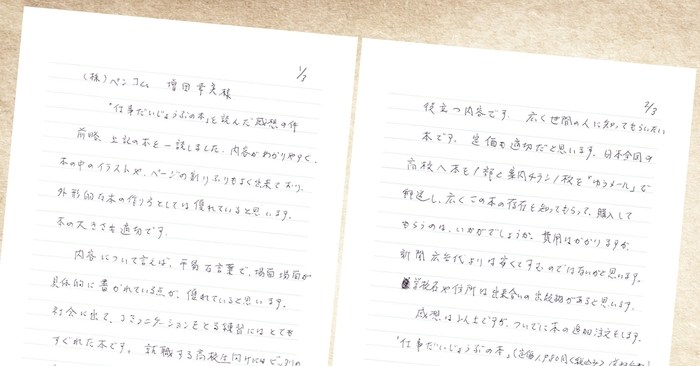 1/3
(株)ペンコム 増田幸美様
「仕事だいじょうぶの本」を読んだ感想の件
前略、上記の本を一読しました。内容がわかりやすく、
本の中のイラストや、ページの割りふりもよく出来ており、
外形的な本の作り方としては優れていると思います。
本の大きさも適切です。
内容について言えば、平易な言葉で、場面場面が
具体的に書かれている点が、優れていると思います。
社会に出て、コミュニケーションをとる練習にはとても
すぐれた本です。就職する高校生向けには
2/3
役立つ内容です。広く世間の人に知ってもらいたい
本です。定価も適切だと思います。日本全国の
高校へ本を1部と案内チラシ1枚を「ゆうメール」で
郵送し、広くこの本の存在を知ってもらって、購入して
もらうのは、いかがでしょうか。費用はかかりますが、
新聞広告代よりは安くてすむのではないかと思います。
学校名や住所は出来合いの出版物があると思います。
感想は以上ですが、ついでに本の追加注文もします。
「仕事だいじょうぶの本」(定価1,980円(税込み)